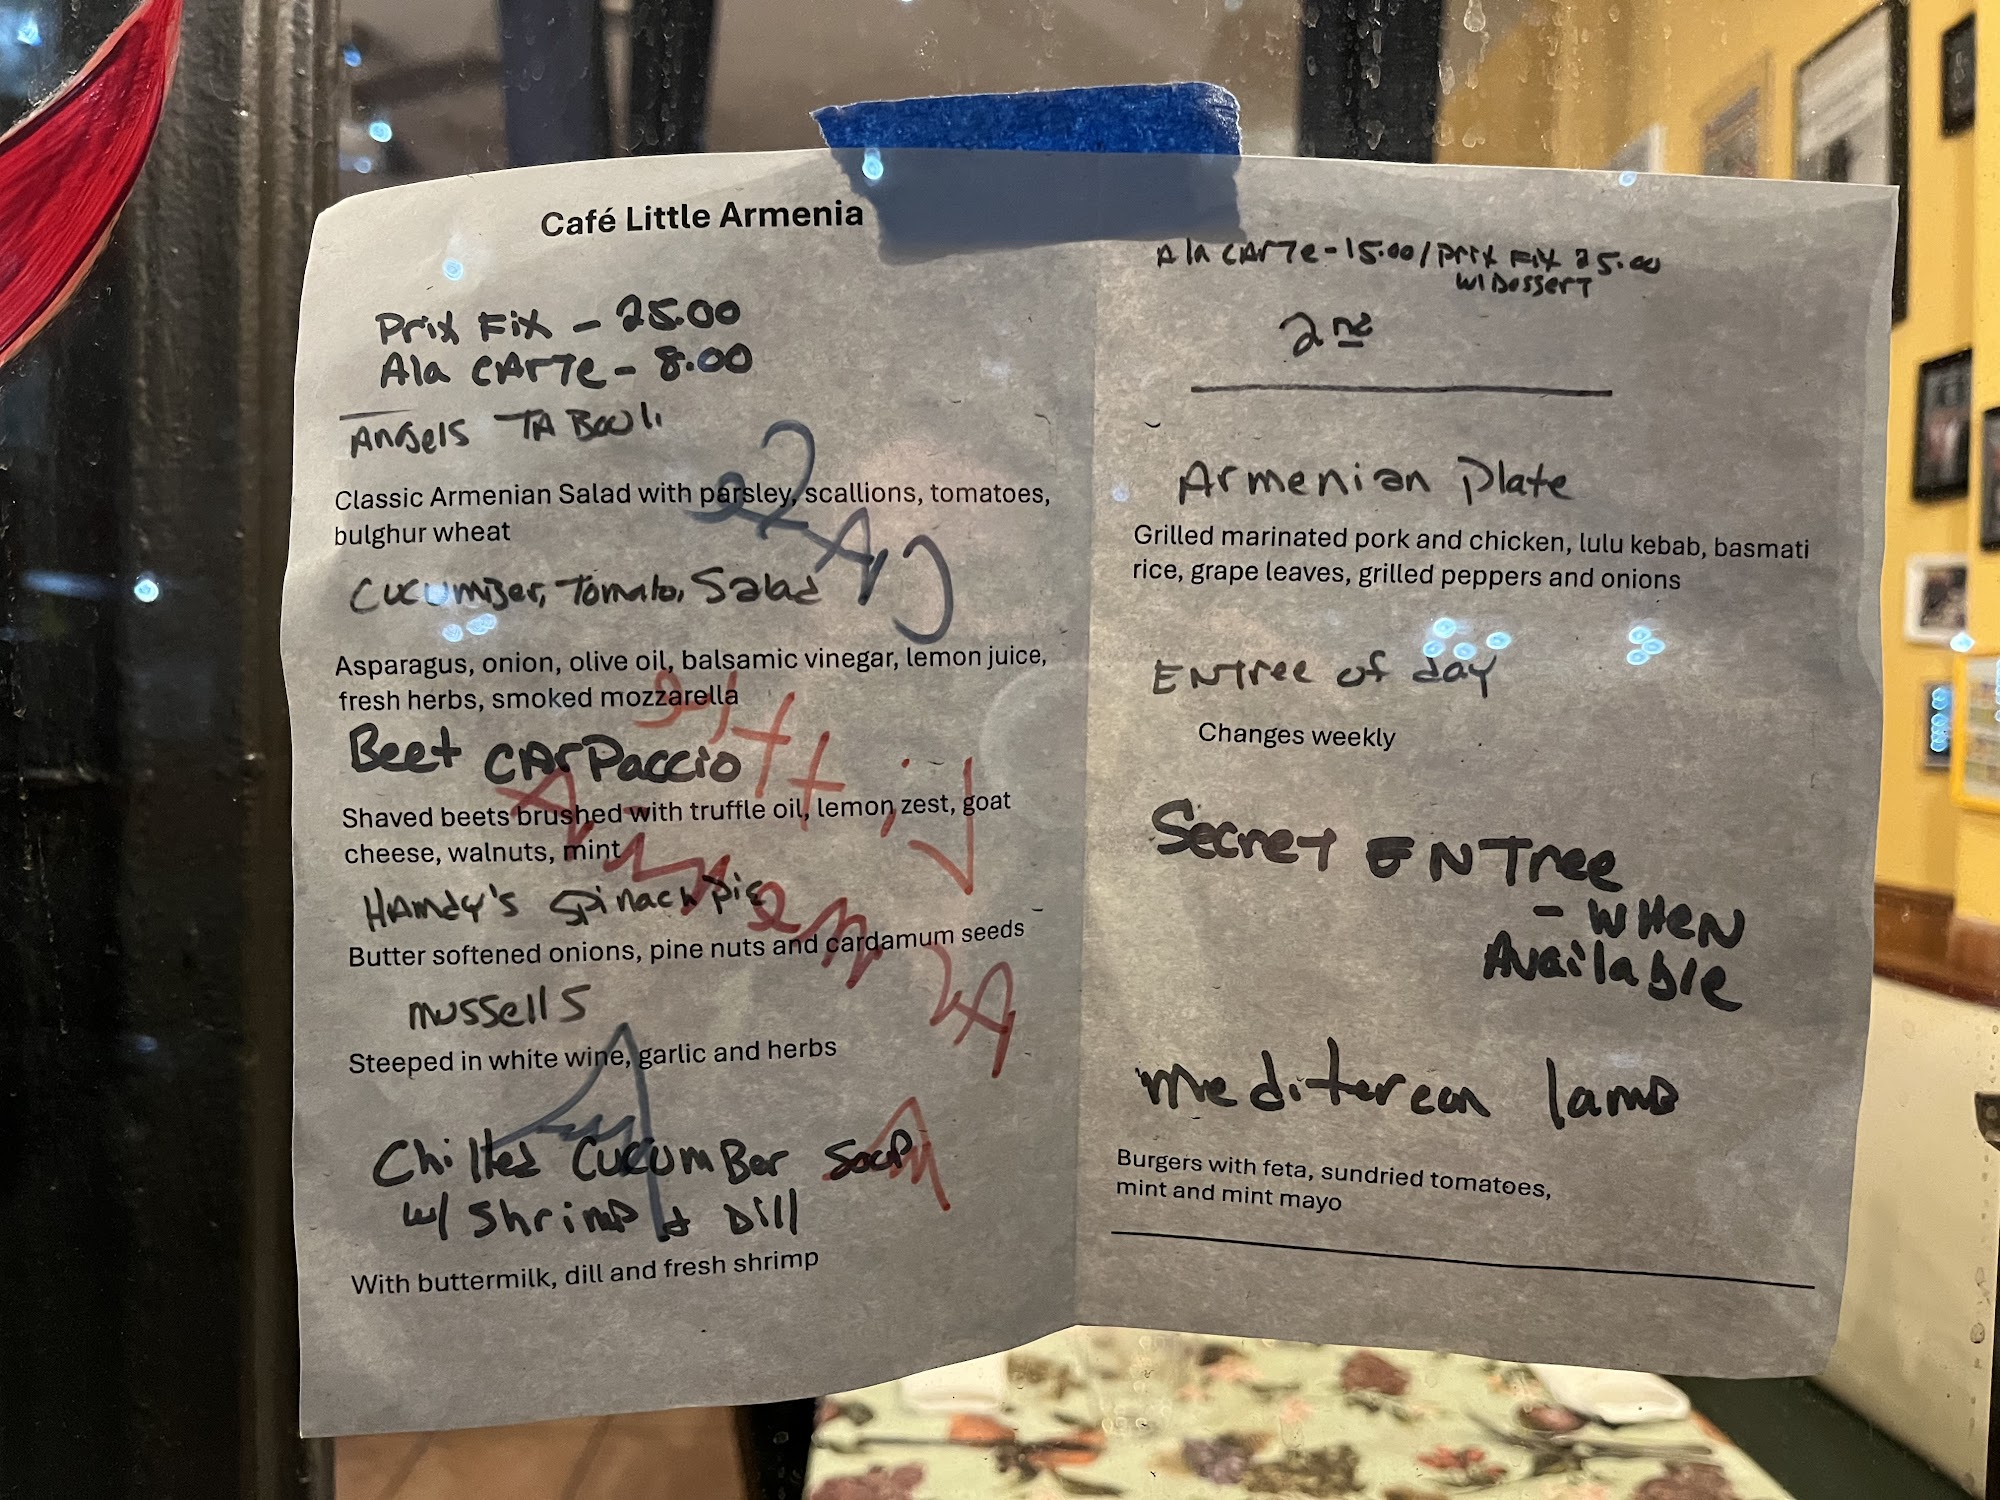 Café Little Armenia
Prix Fix - 25.00
Ala CArTe - 8.00
Angels TABouli
Classic Armenian Salad with parsley, scallions, tomatoes,
bulghur wheat
Cucumber, Tomato, Salad
Asparagus, onion, olive oil, balsamic vinegar, lemon juice,
fresh herbs, smoked mozzarella
Beet CArPaccio
Shaved beets brushed with truffle oil, lemon zest, goat
cheese, walnuts, mint
HAmdy's Spinach pie
Butter softened onions, pine nuts and cardamum seeds
mussells
Steeped in white wine, garlic and herbs
Chilled Cucumber Soup
w/ Shrimp & Dill
With buttermilk, dill and fresh shrimp
Ala CArTe - 15.00 / Prix Fix 25.00
w/ Dessert
2nd
Armenian plate
Grilled marinated pork and chicken, lulu kebab, basmati
rice, grape leaves, grilled peppers and onions
ENTree of day
Changes weekly
Secret ENTree
- WHeN
Available
mediterean lamb
Burgers with feta, sundried tomatoes,
mint and mint mayo